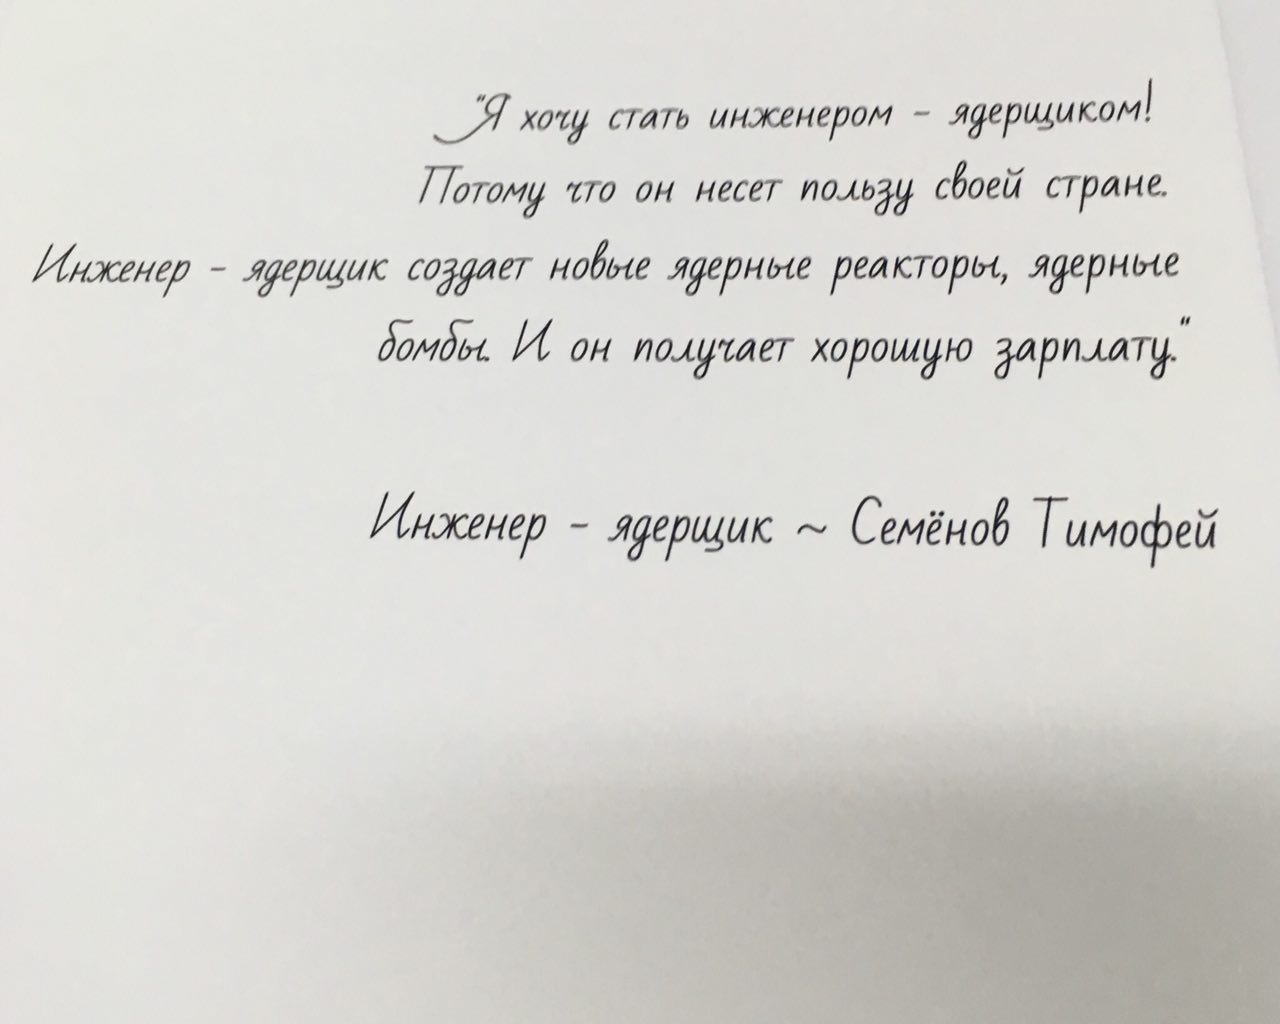 "Я хочу стать инженером - ядерщиком!
Потому что он несет пользу своей стране.
Инженер - ядерщик создает новые ядерные реакторы, ядерные
бомбы. И он получает хорошую зарплату."
Инженер - ядерщик ~ Семёнов Тимофей